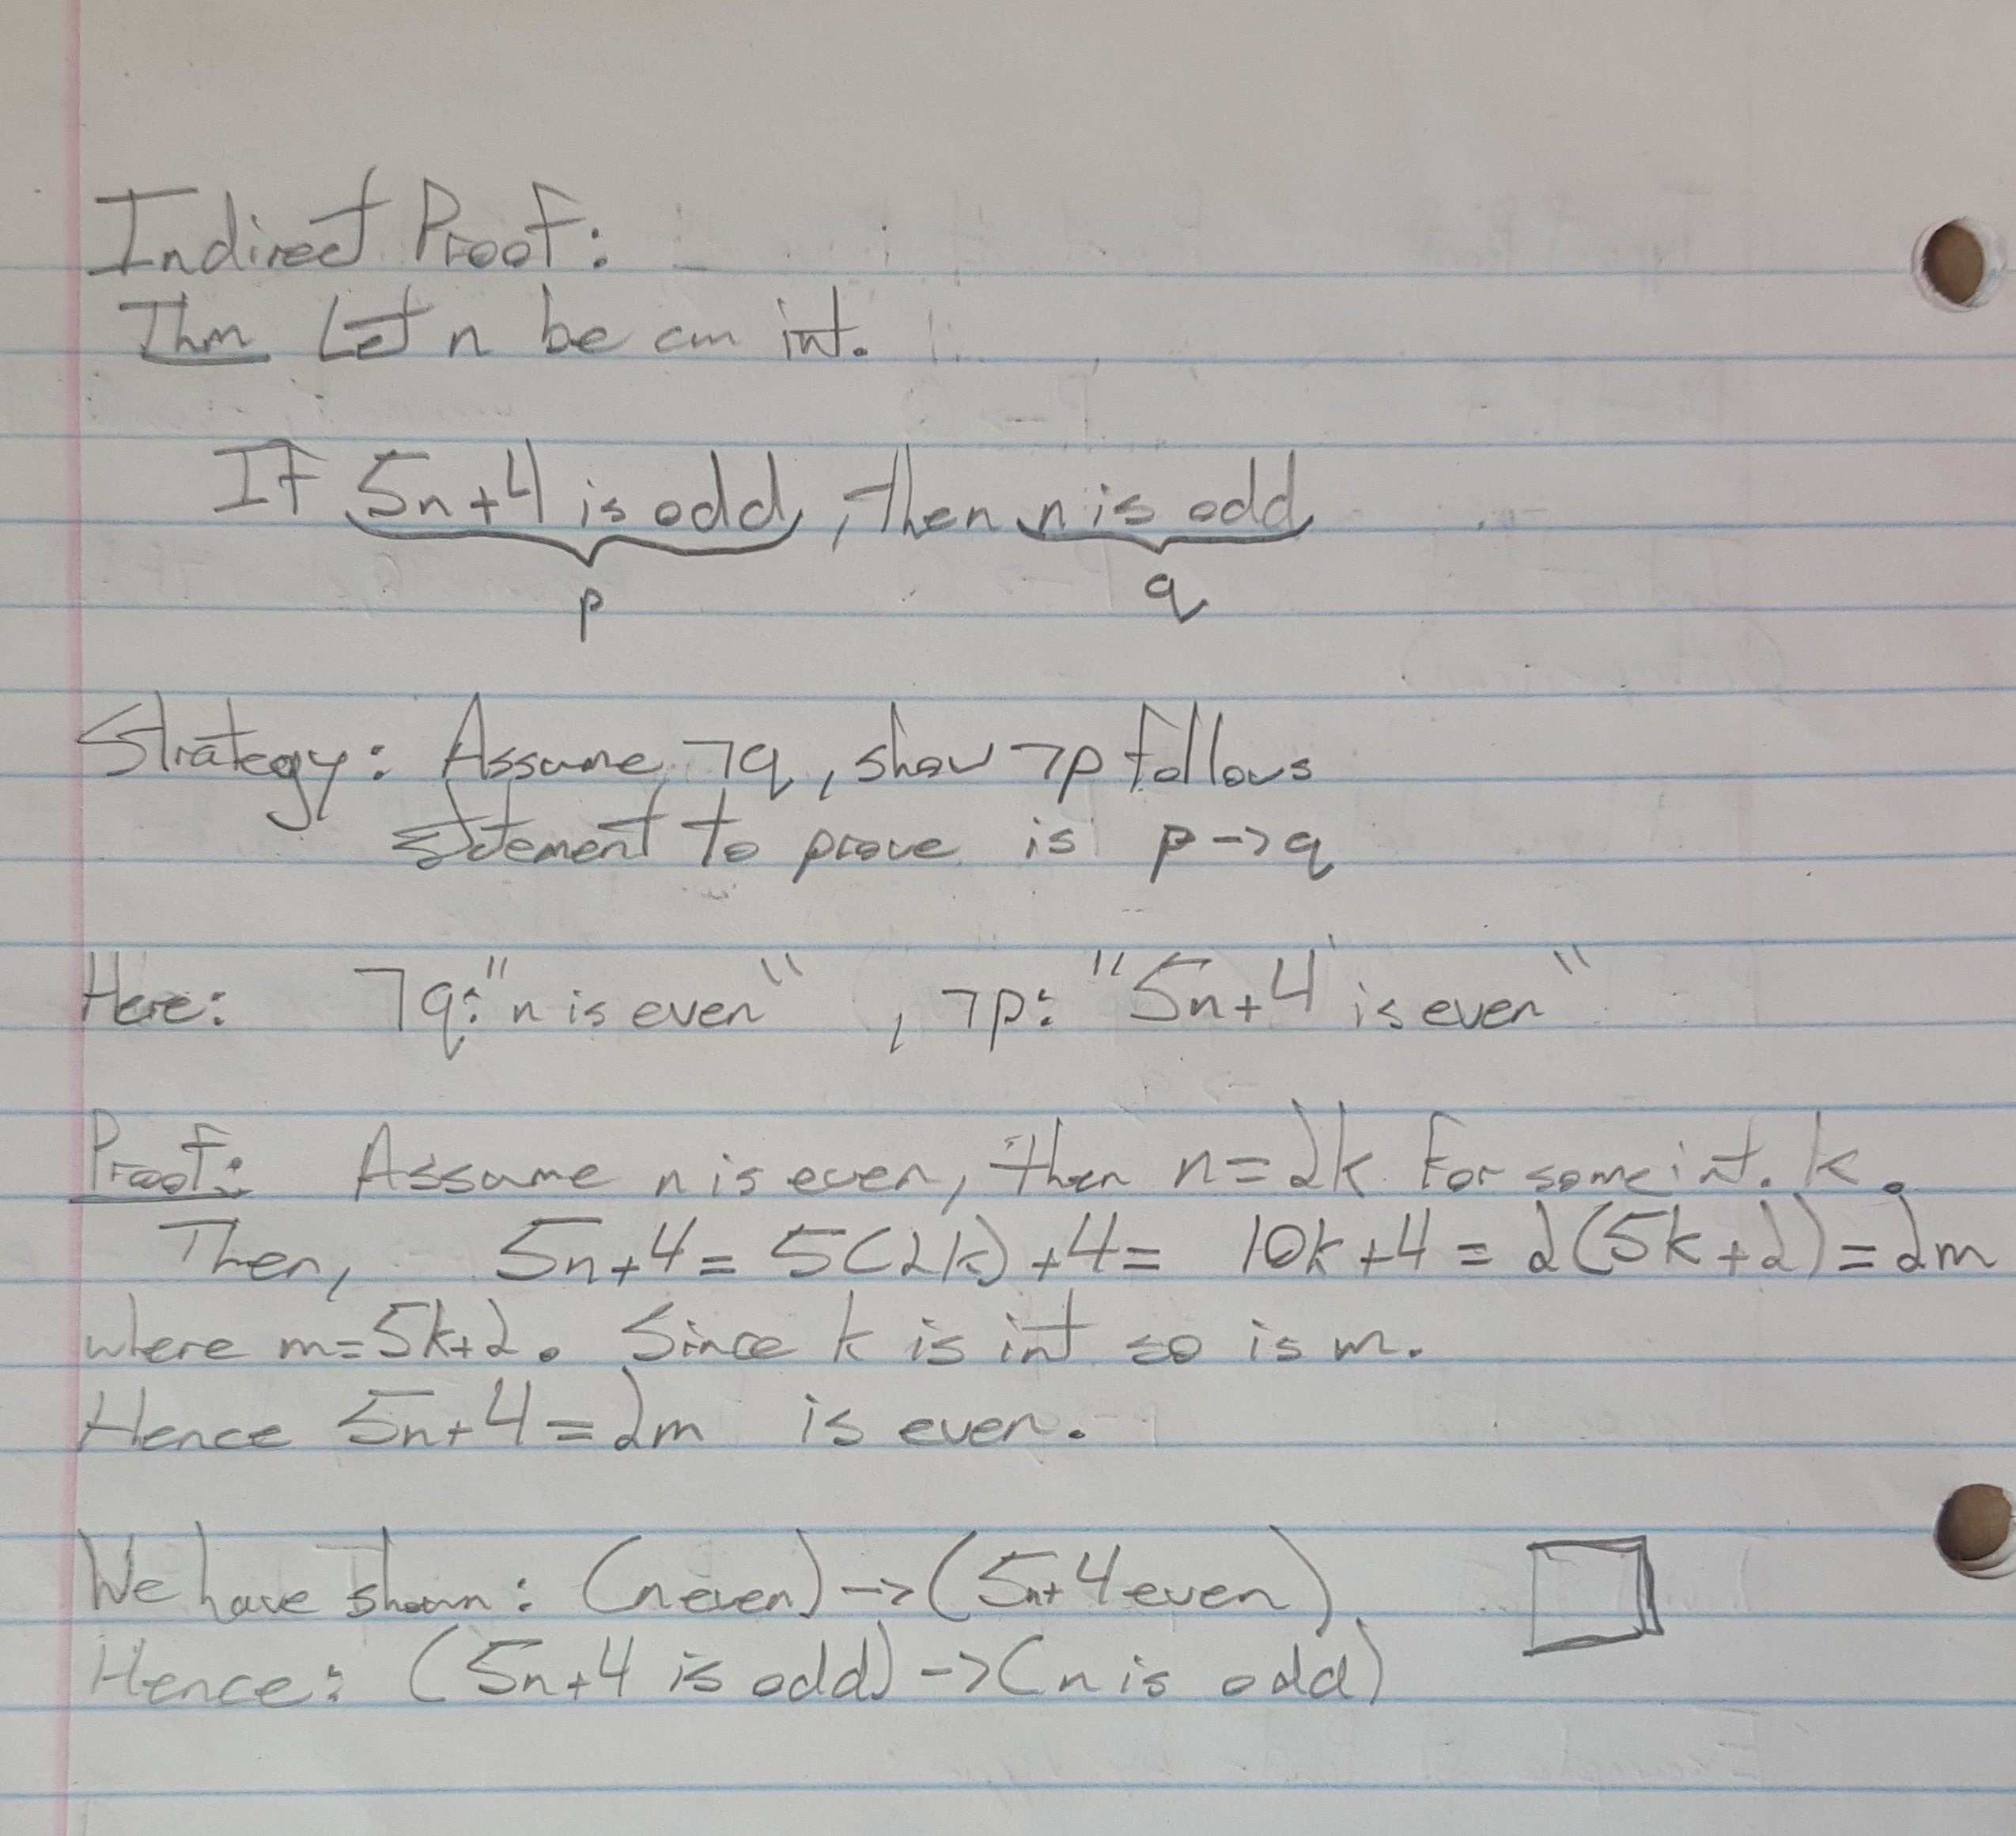 Indirect Proof:
Thm Let n be an int.
If 5n+4 is odd, then n is odd
p q
Strategy: Assume ¬q, show ¬p follows
statement to prove is p->q
Here: ¬q: "n is even" , ¬p: "5n+4 is even"
Proof: Assume n is even, then n=2k for some int. k.
Then, 5n+4 = 5(2k)+4 = 10k+4 = 2(5k+2) = 2m
where m=5k+2. Since k is int so is m.
Hence 5n+4=2m is even.
We have shown: (n even) -> (5n+4 even)
Hence: (5n+4 is odd) -> (n is odd)